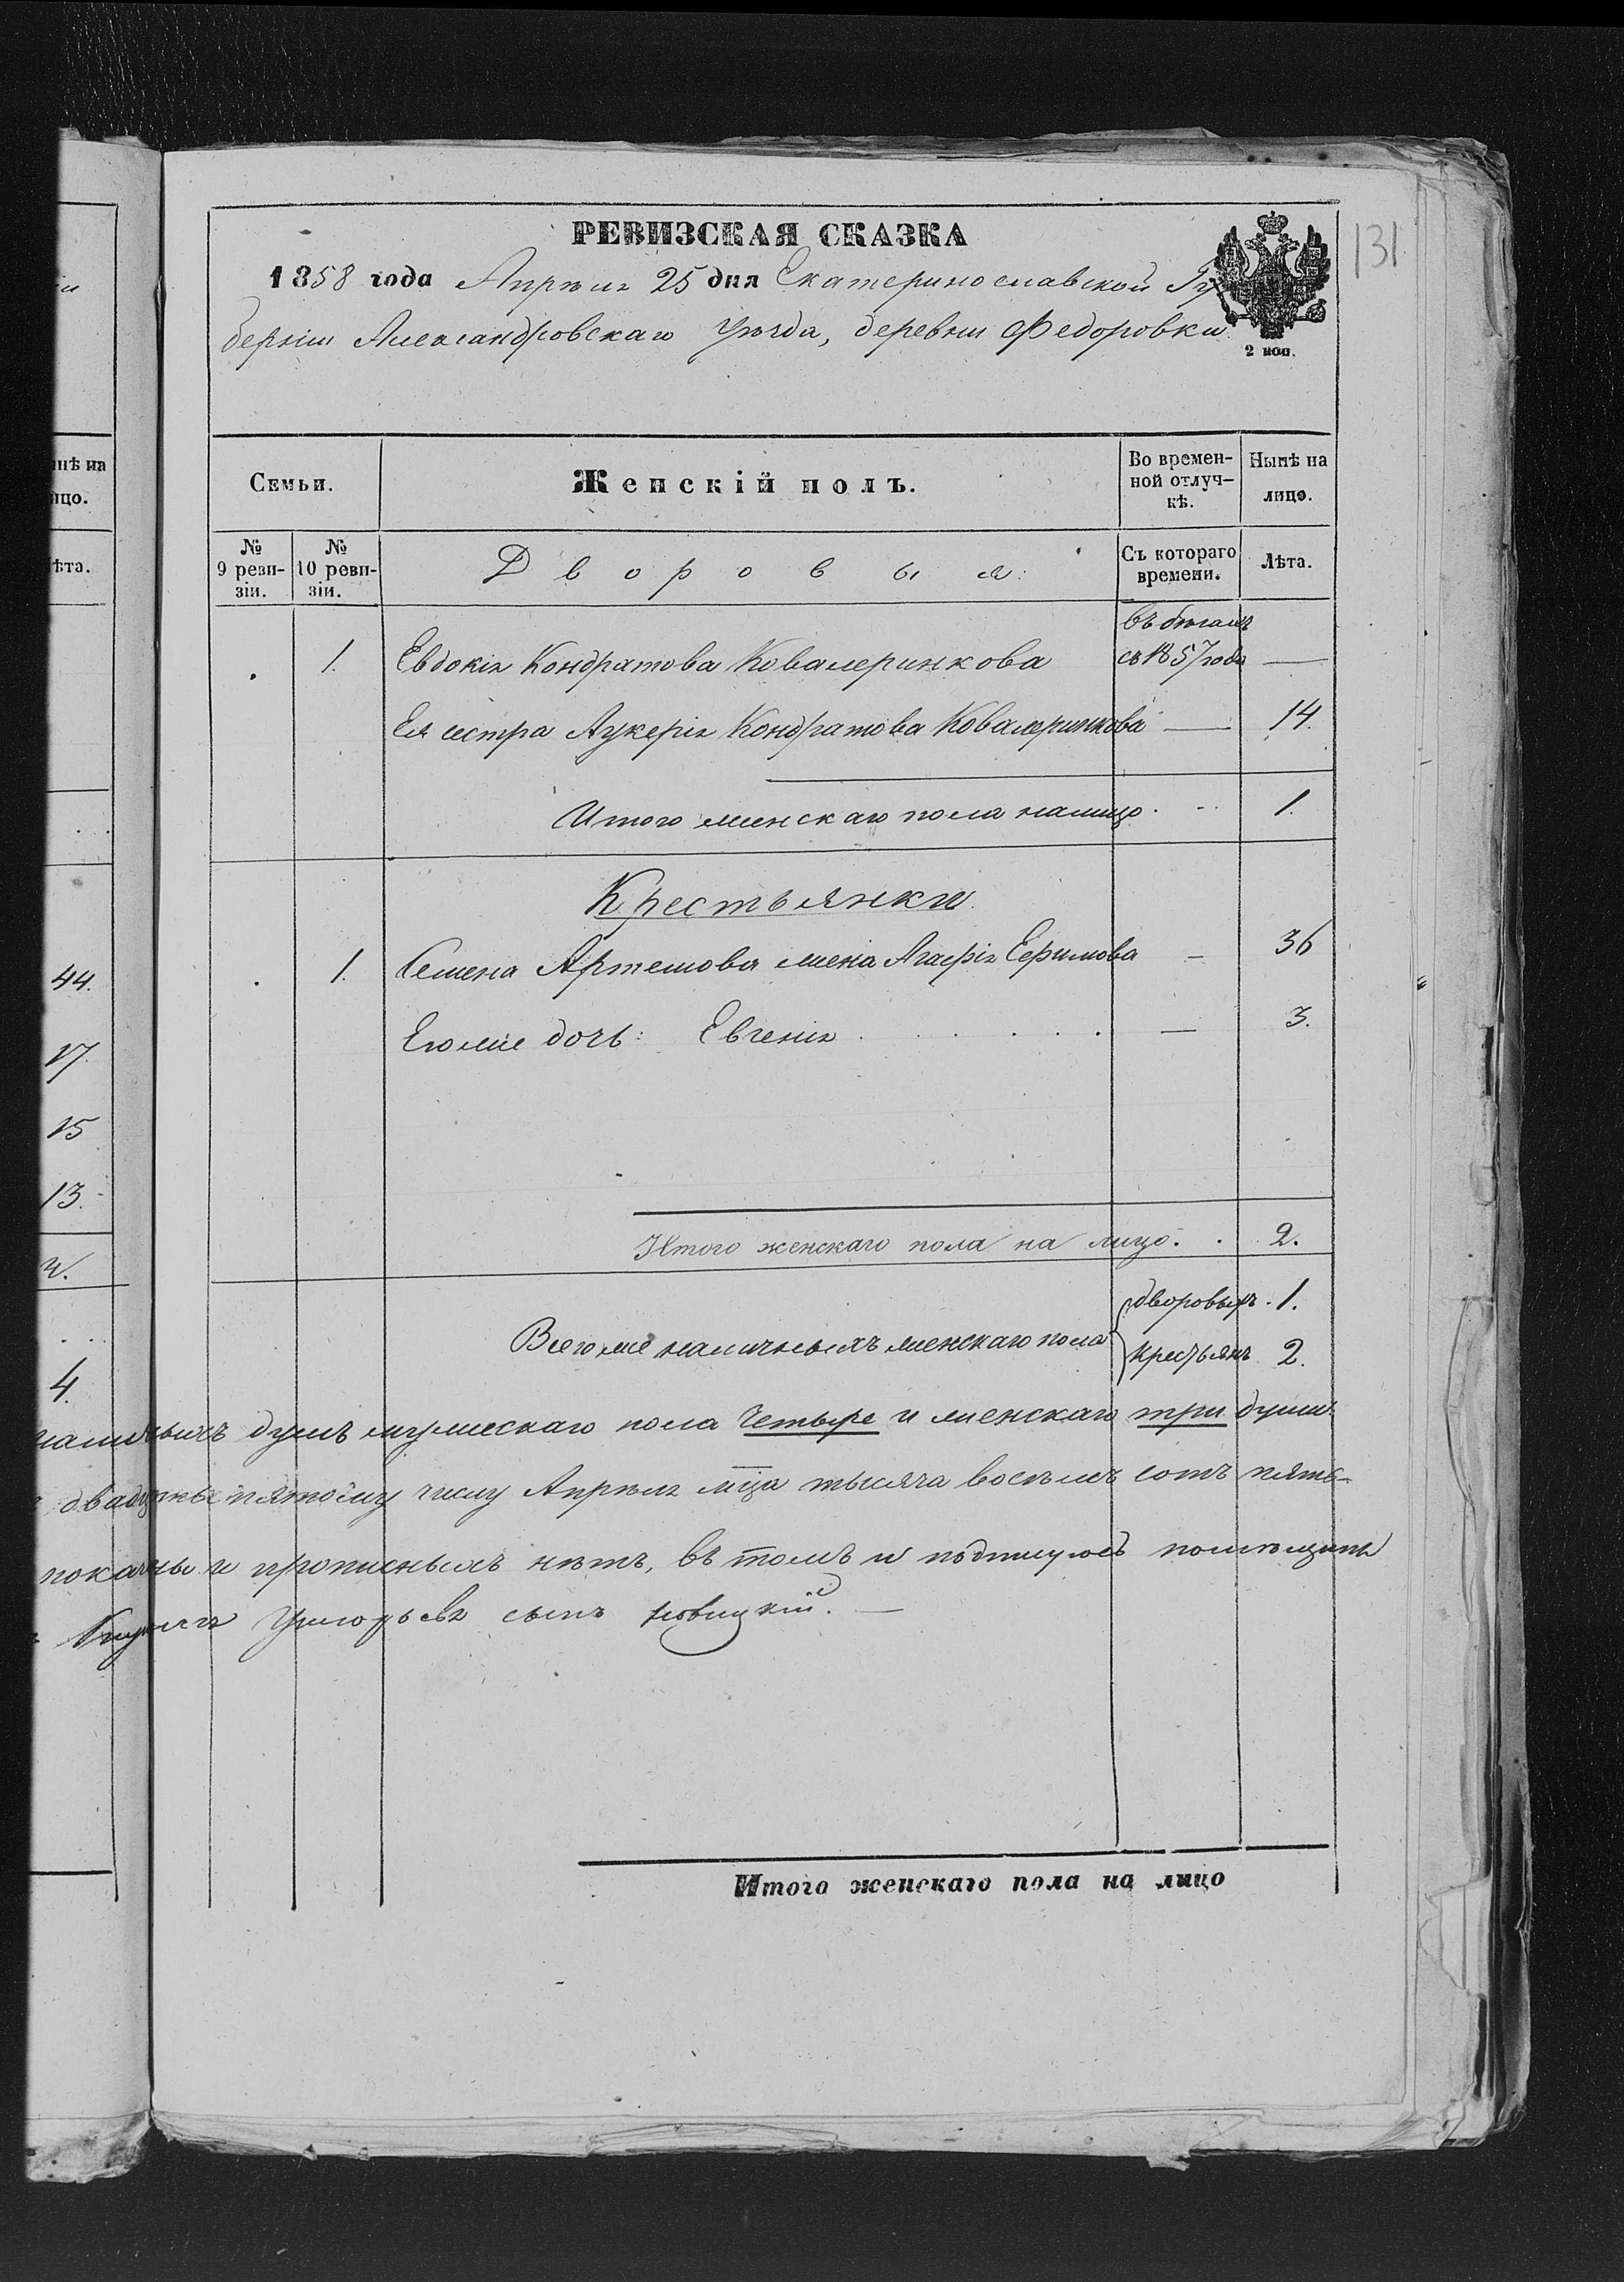 131
РЕВИЗСКАЯ СКАЗКА
1858 года Апрѣля 25 дня Екатеринославской Гу
берніи Александровскаго Уѣзда, деревни Федоровки
2 коп.
Семьи.
Женскій полъ.
Во времен-
ной отлуч-
кѣ.
Нынѣ на
лицо.
№
9 реви-
зіи.
№
10 реви-
зіи.
Дворовыя:
Съ котораго
времени.
Лѣта.
1. Евдокія Кондратова въ бѣгахъ
съ 1857 года —
Ея сестра Лукерія Кондратова — 14.
Итого женскаго пола налицо 1.
Крестьянки
1. Семена Артемова жена Агафія Ефимова — 36
Его же дочь: Евгенія — 3.
Итого женскаго пола на лицо. 2.
дворовыхъ 1.
Всего же наличныхъ женскаго пола
крестьянъ 2.
наличныхъ душъ мужескаго пола четыре и женскаго три души
двадцать пятому числу Апрѣля мца тысяча восемь сотъ пять-
и прописныхъ нѣтъ, въ томъ и подпишуюсь помѣщикъ
сынъ
Итого женскаго пола на лицо
нѣ на
ицо.
ѣта.
44.
17.
15
13.
4.